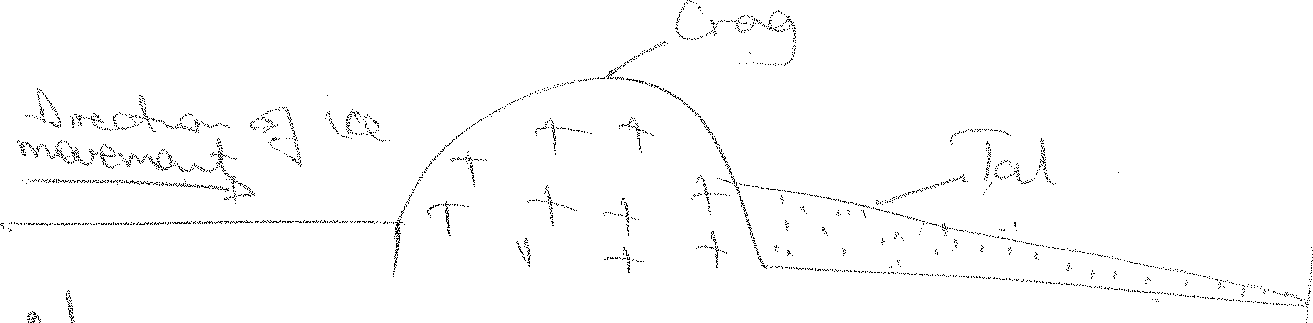 Crag
Direction of ice
movement
Tail